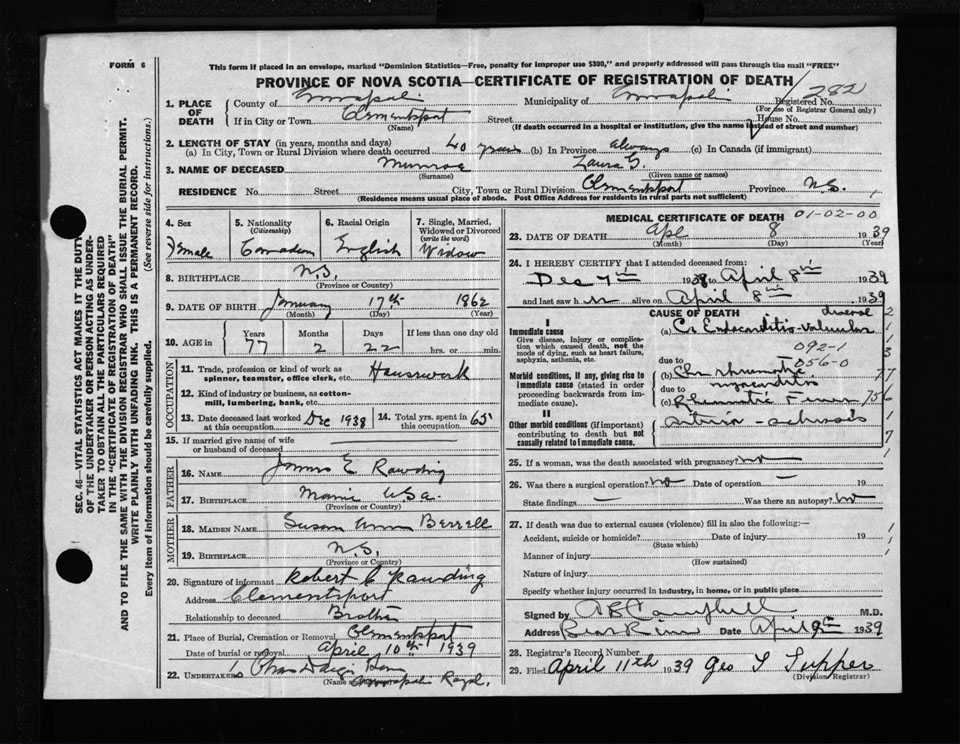 FORM 6
This form if placed in an envelope, marked "Dominion Statistics—Free, penalty for improper use $300," and properly addressed will pass through the mail "FREE"
PROVINCE OF NOVA SCOTIA—CERTIFICATE OF REGISTRATION OF DEATH
1. PLACE OF DEATH County of Annapolis Municipality of Annapolis Registered No. 282
(For use of Registrar General only)
If in City or Town Clementsport Street House No.
(Name) (If death occurred in a hospital or institution, give the name instead of street and number)
2. LENGTH OF STAY (in years, months and days)
(a) In City, Town or Rural Division where death occurred 40 years (b) In Province always (c) In Canada (if immigrant)
3. NAME OF DECEASED Munroe Laura G.
(Surname) (Given name or names)
RESIDENCE No. Street City, Town or Rural Division Clementsport Province N.S.
(Residence means usual place of abode. Post Office Address for residents in rural parts not sufficient)
4. Sex 5. Nationality 6. Racial Origin 7. Single, Married, Widowed or Divorced
(Citizenship) (write the word)
Female Canadian English Widow
8. BIRTHPLACE N.S.
(Province or Country)
9. DATE OF BIRTH January 17th 1862
(Month) (Day) (Year)
10. AGE in Years Months Days If less than one day old
77 2 22 hrs. or min.
OCCUPATION
11. Trade, profession or kind of work as spinner, teamster, office clerk, etc. Housework
12. Kind of industry or business, as cotton-mill, lumbering, bank, etc.
13. Date deceased last worked at this occupation Dec 1938 14. Total yrs. spent in this occupation 65
15. If married give name of wife or husband of deceased
FATHER
16. NAME James E Rawding
17. BIRTHPLACE Maine USA.
(Province or Country)
MOTHER
18. MAIDEN NAME Susan Ann Berrell
19. BIRTHPLACE N.S.
(Province or Country)
20. Signature of informant Robert C Rawding
Address Clementsport
Relationship to deceased Brother
21. Place of Burial, Cremation or Removal Clementsport
Date of burial or removal April 10th 1939
22. UNDERTAKER
(Name Annapolis Royal.
MEDICAL CERTIFICATE OF DEATH 01-02-00
23. DATE OF DEATH Apl 8 1939
(Month) (Day) (Year)
24. I HEREBY CERTIFY that I attended deceased from:
Dec 7th 1938 to April 8th 1939
and last saw h er alive on April 8th 1939
CAUSE OF DEATH
I
Immediate cause
Give disease, injury or complication which caused death, not the mode of dying, such as heart failure, asphyxia, asthenia, etc.
(a) Cr Endocarditis-valvular disease
092-1
due to 056-0
Morbid conditions, if any, giving rise to immediate cause (stated in order proceeding backwards from immediate cause).
(b) Chr rheumatic myocarditis
due to
(c) Rheumatic Fever 756
II
Other morbid conditions (if important) contributing to death but not causally related to immediate cause.
arterio-sclerosis
25. If a woman, was the death associated with pregnancy? no
26. Was there a surgical operation? no Date of operation —
State findings — Was there an autopsy? no
27. If death was due to external causes (violence) fill in also the following:—
Accident, suicide or homicide? Date of injury 19
(State which)
Manner of injury
(How sustained)
Nature of injury
Specify whether injury occurred in industry, in home, or in public place
Signed by Campbell M.D.
Address Bear River Date April 9th 1939
28. Registrar's Record Number
29. Filed April 11th 1939 Geo T Tupper
(Division Registrar)
SEC. 46—VITAL STATISTICS ACT MAKES IT THE DUTY OF THE UNDERTAKER OR PERSON ACTING AS UNDERTAKER TO OBTAIN ALL THE PARTICULARS REQUIRED IN THE "CERTIFICATE OF REGISTRATION OF DEATH"
AND TO FILE THE SAME WITH THE DIVISION REGISTRAR WHO SHALL ISSUE THE BURIAL PERMIT.
WRITE PLAINLY WITH UNFADING INK. THIS IS A PERMANENT RECORD.
Every item of information should be carefully supplied. (See reverse side for instructions.)